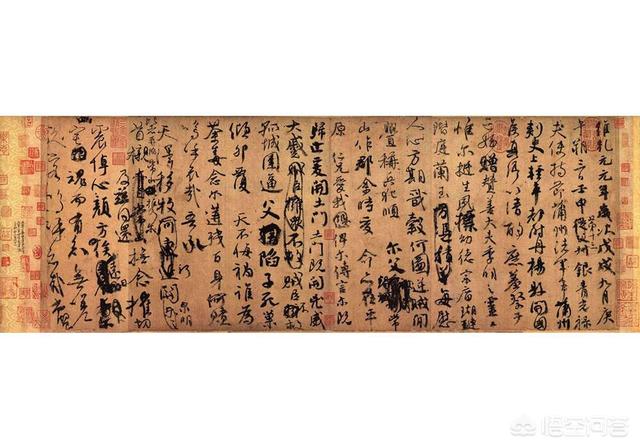 維乾元元年歲次戊戌九月庚
午朔三日壬申第十三叔銀青光祿
夫使持節蒲州諸軍事蒲州
刺史上輕車都尉丹楊縣開國
侯真卿以清酌庶羞祭于
亡姪贈贊善大夫季明之靈
惟爾挺生夙標幼德宗廟瑚璉
階庭蘭玉每慰
人心方期戩穀何圖逆賊閒
釁稱兵犯順爾父竭誠常
山作郡余時受命亦在平
原仁兄愛我俾爾傳言爾既
歸止爰開土門土門既開兇威
大蹙賊臣不救
孤城圍逼父陷子死巢
傾卵覆天不悔禍誰為
荼毒念爾遘殘百身何贖
嗚乎哀哉吾承
天澤移牧河關泉明
首櫬及茲同還撫念摧切
震悼心顏方俟
幽宅魂而有知無嗟
久客嗚呼哀哉尚饗
悟空问答